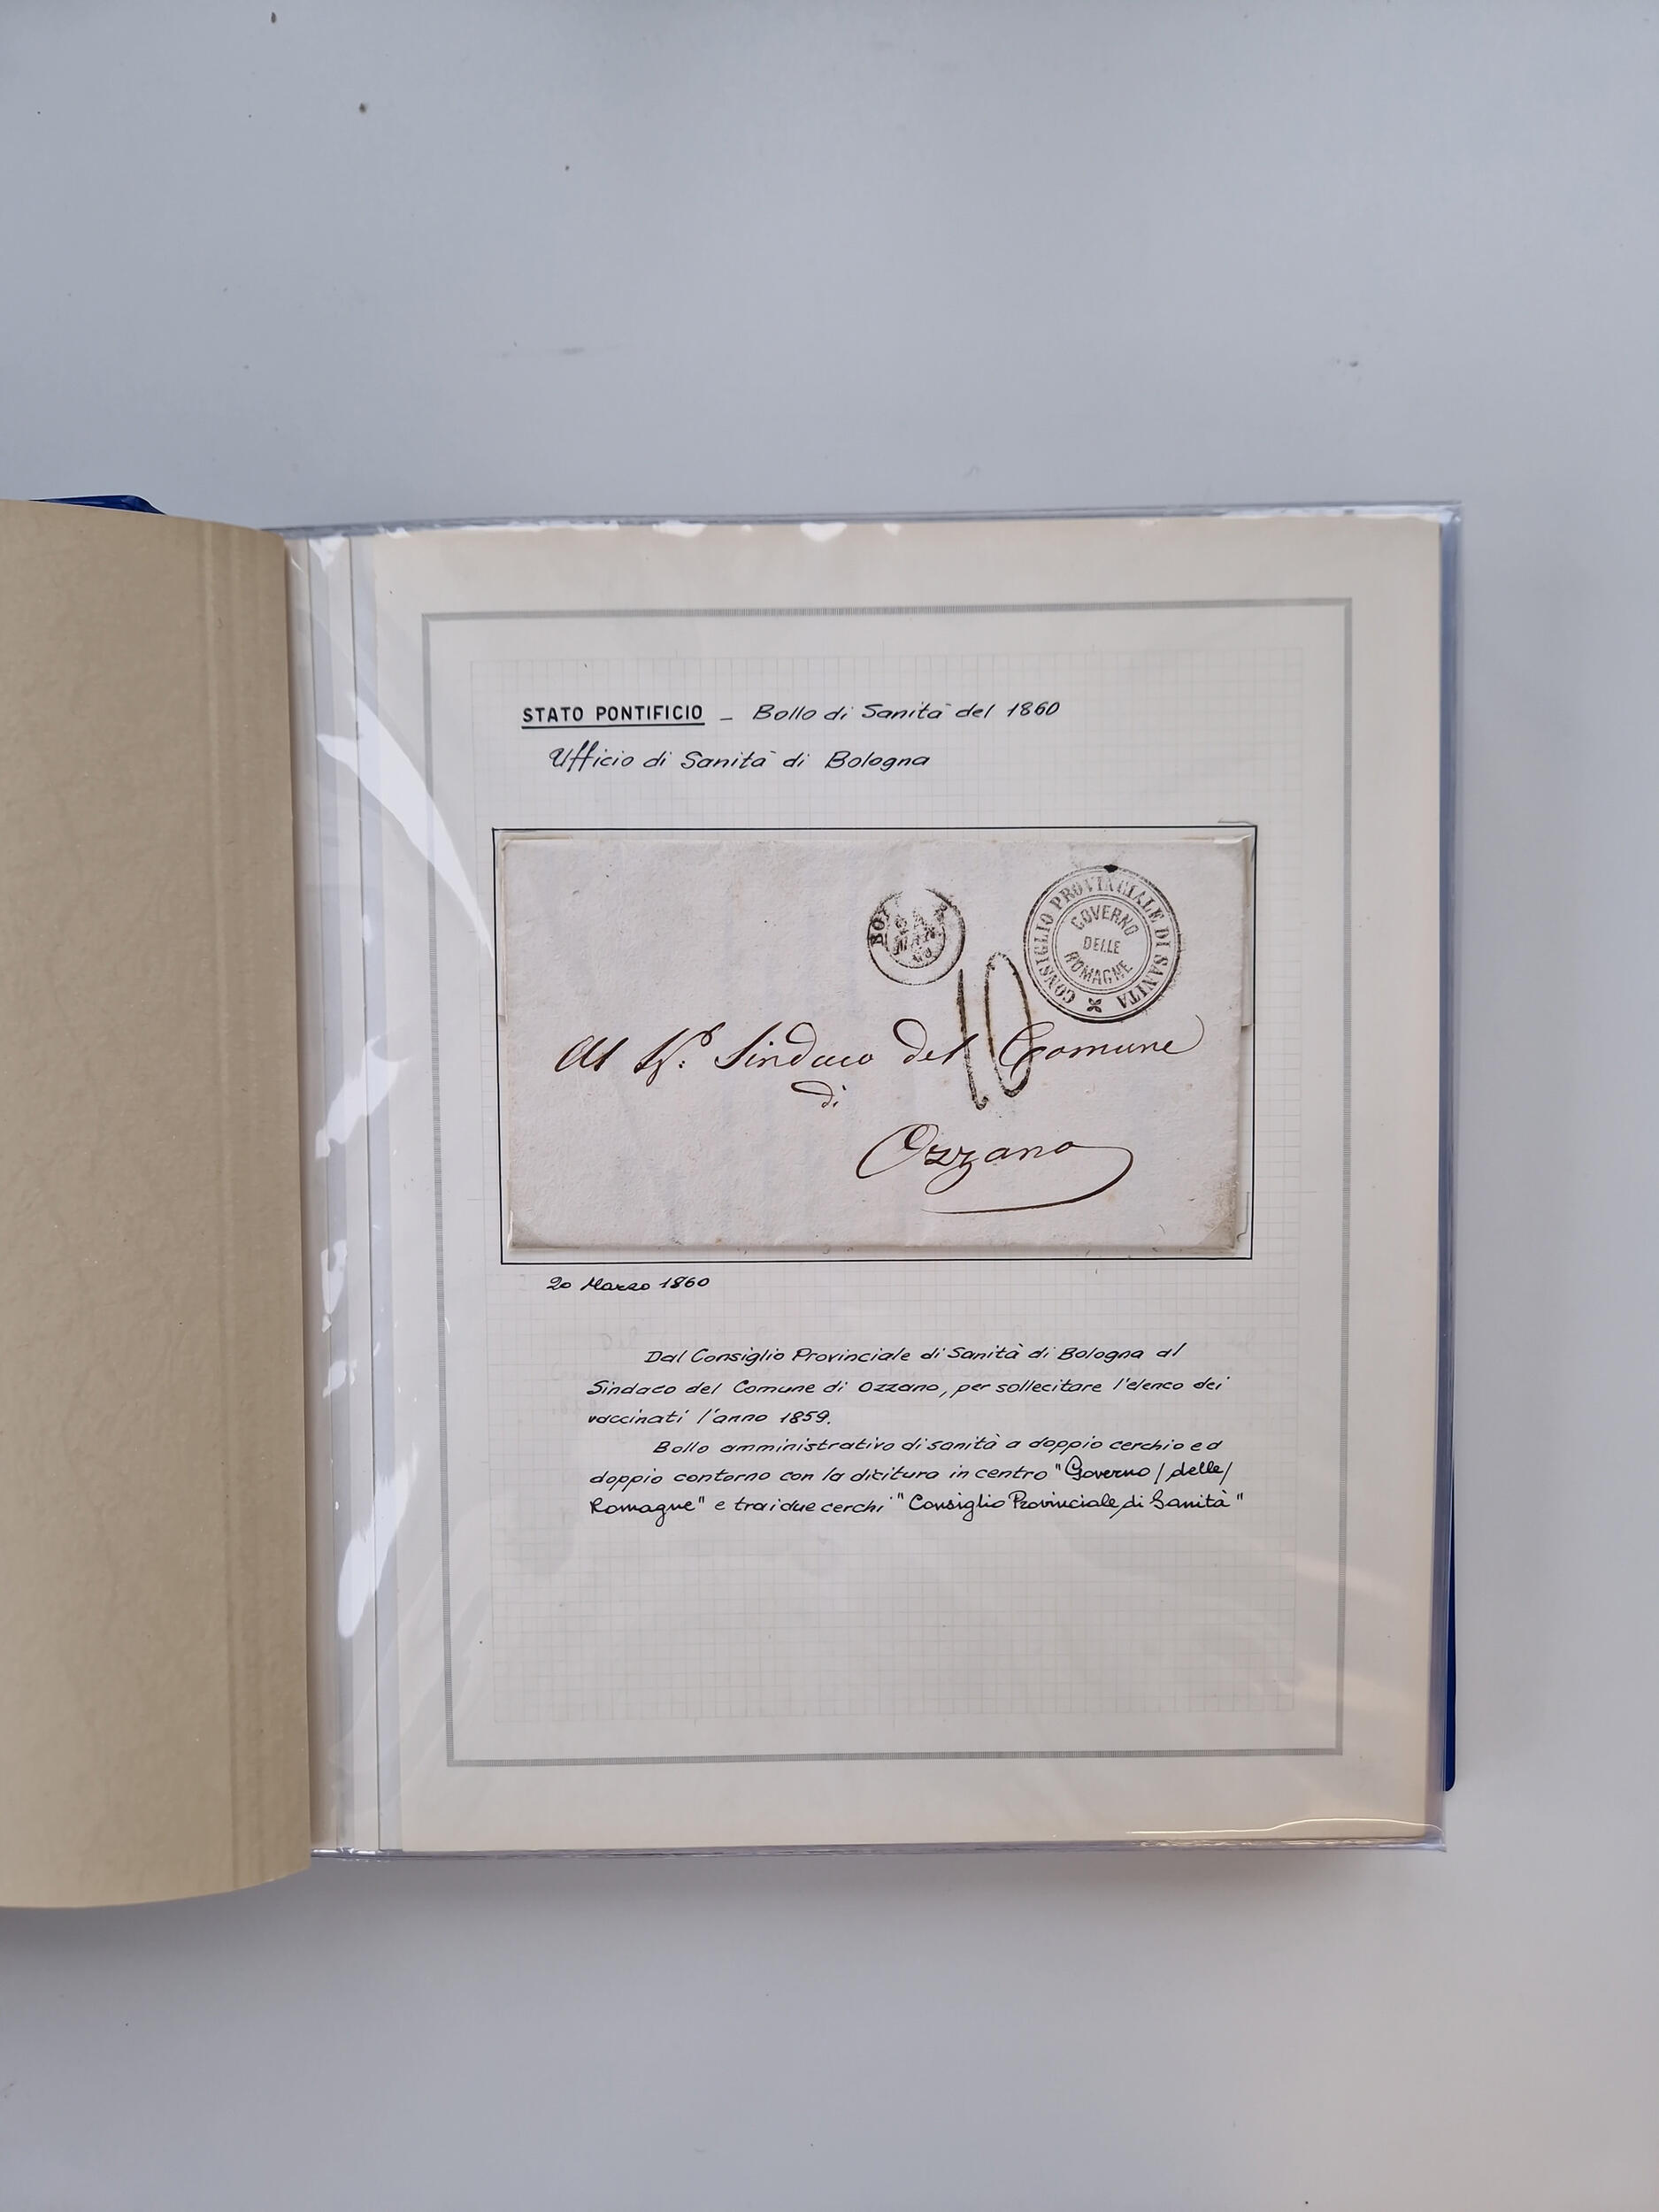 STATO PONTIFICIO – Bollo di Sanità del 1860
Ufficio di Sanità di Bologna
BO
CONSIGLIO PROVINCIALE DI SANITA
GOVERNO
DELLE
ROMAGNE
10
Al Sindaco del Comune
di
Ozzano
20 Marzo 1860
Dal Consiglio Provinciale di Sanità di Bologna al
Sindaco del Comune di Ozzano, per sollecitare l'elenco dei
vaccinati l'anno 1859.
Bollo amministrativo di sanità a doppio cerchio ed
doppio contorno con la dicitura in centro "Governo / delle /
Romagne" e tra i due cerchi "Consiglio Provinciale di Sanità"